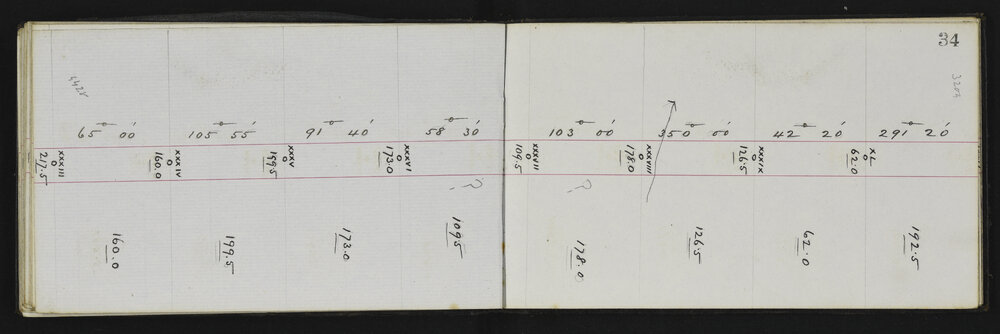 34
65° 00'
105° 55'
91° 40'
58° 30'
103° 00'
350° 00'
42° 20'
291° 20'
XXXIII
217.5
XXXIV
160.0
XXXV
199.5
XXXVI
173.0
XXXVII
109.5
XXXVIII
178.0
XXXIX
126.5
XL
62.0
?
?
160.0
199.5
173.0
109.5
178.0
126.5
62.0
192.5